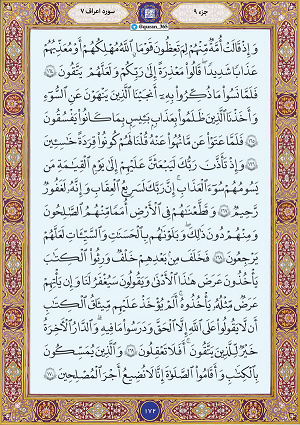 جزء ۹
@quran_365
سوره اعراف ۷
وَإِذْ قَالَتْ أُمَّةٌ مِّنْهُمْ لِمَ تَعِظُونَ قَوْمًا اللَّهُ مُهْلِكُهُمْ أَوْ مُعَذِّبُهُمْ
عَذَابًا شَدِيدًا قَالُوا مَعْذِرَةً إِلَىٰ رَبِّكُمْ وَلَعَلَّهُمْ يَتَّقُونَ ﴿١٦٤﴾
فَلَمَّا نَسُوا مَا ذُكِّرُوا بِهِ أَنجَيْنَا الَّذِينَ يَنْهَوْنَ عَنِ السُّوءِ
وَأَخَذْنَا الَّذِينَ ظَلَمُوا بِعَذَابٍ بَئِيسٍ بِمَا كَانُوا يَفْسُقُونَ
﴿١٦٥﴾ فَلَمَّا عَتَوْا عَن مَّا نُهُوا عَنْهُ قُلْنَا لَهُمْ كُونُوا قِرَدَةً خَاسِئِينَ
﴿١٦٦﴾ وَإِذْ تَأَذَّنَ رَبُّكَ لَيَبْعَثَنَّ عَلَيْهِمْ إِلَىٰ يَوْمِ الْقِيَامَةِ مَن
يَسُومُهُمْ سُوءَ الْعَذَابِ إِنَّ رَبَّكَ لَسَرِيعُ الْعِقَابِ وَإِنَّهُ لَغَفُورٌ
رَّحِيمٌ ﴿١٦٧﴾ وَقَطَّعْنَاهُمْ فِي الْأَرْضِ أُمَمًا مِّنْهُمُ الصَّالِحُونَ
وَمِنْهُمْ دُونَ ذَٰلِكَ وَبَلَوْنَاهُم بِالْحَسَنَاتِ وَالسَّيِّئَاتِ لَعَلَّهُمْ
يَرْجِعُونَ ﴿١٦٨﴾ فَخَلَفَ مِن بَعْدِهِمْ خَلْفٌ وَرِثُوا الْكِتَابَ
يَأْخُذُونَ عَرَضَ هَٰذَا الْأَدْنَىٰ وَيَقُولُونَ سَيُغْفَرُ لَنَا وَإِن يَأْتِهِمْ
عَرَضٌ مِّثْلُهُ يَأْخُذُوهُ أَلَمْ يُؤْخَذْ عَلَيْهِم مِّيثَاقُ الْكِتَابِ
أَن لَّا يَقُولُوا عَلَى اللَّهِ إِلَّا الْحَقَّ وَدَرَسُوا مَا فِيهِ وَالدَّارُ الْآخِرَةُ
خَيْرٌ لِّلَّذِينَ يَتَّقُونَ أَفَلَا تَعْقِلُونَ ﴿١٦٩﴾ وَالَّذِينَ يُمَسِّكُونَ
بِالْكِتَابِ وَأَقَامُوا الصَّلَاةَ إِنَّا لَا نُضِيعُ أَجْرَ الْمُصْلِحِينَ ﴿١٧٠﴾
۱۷۲